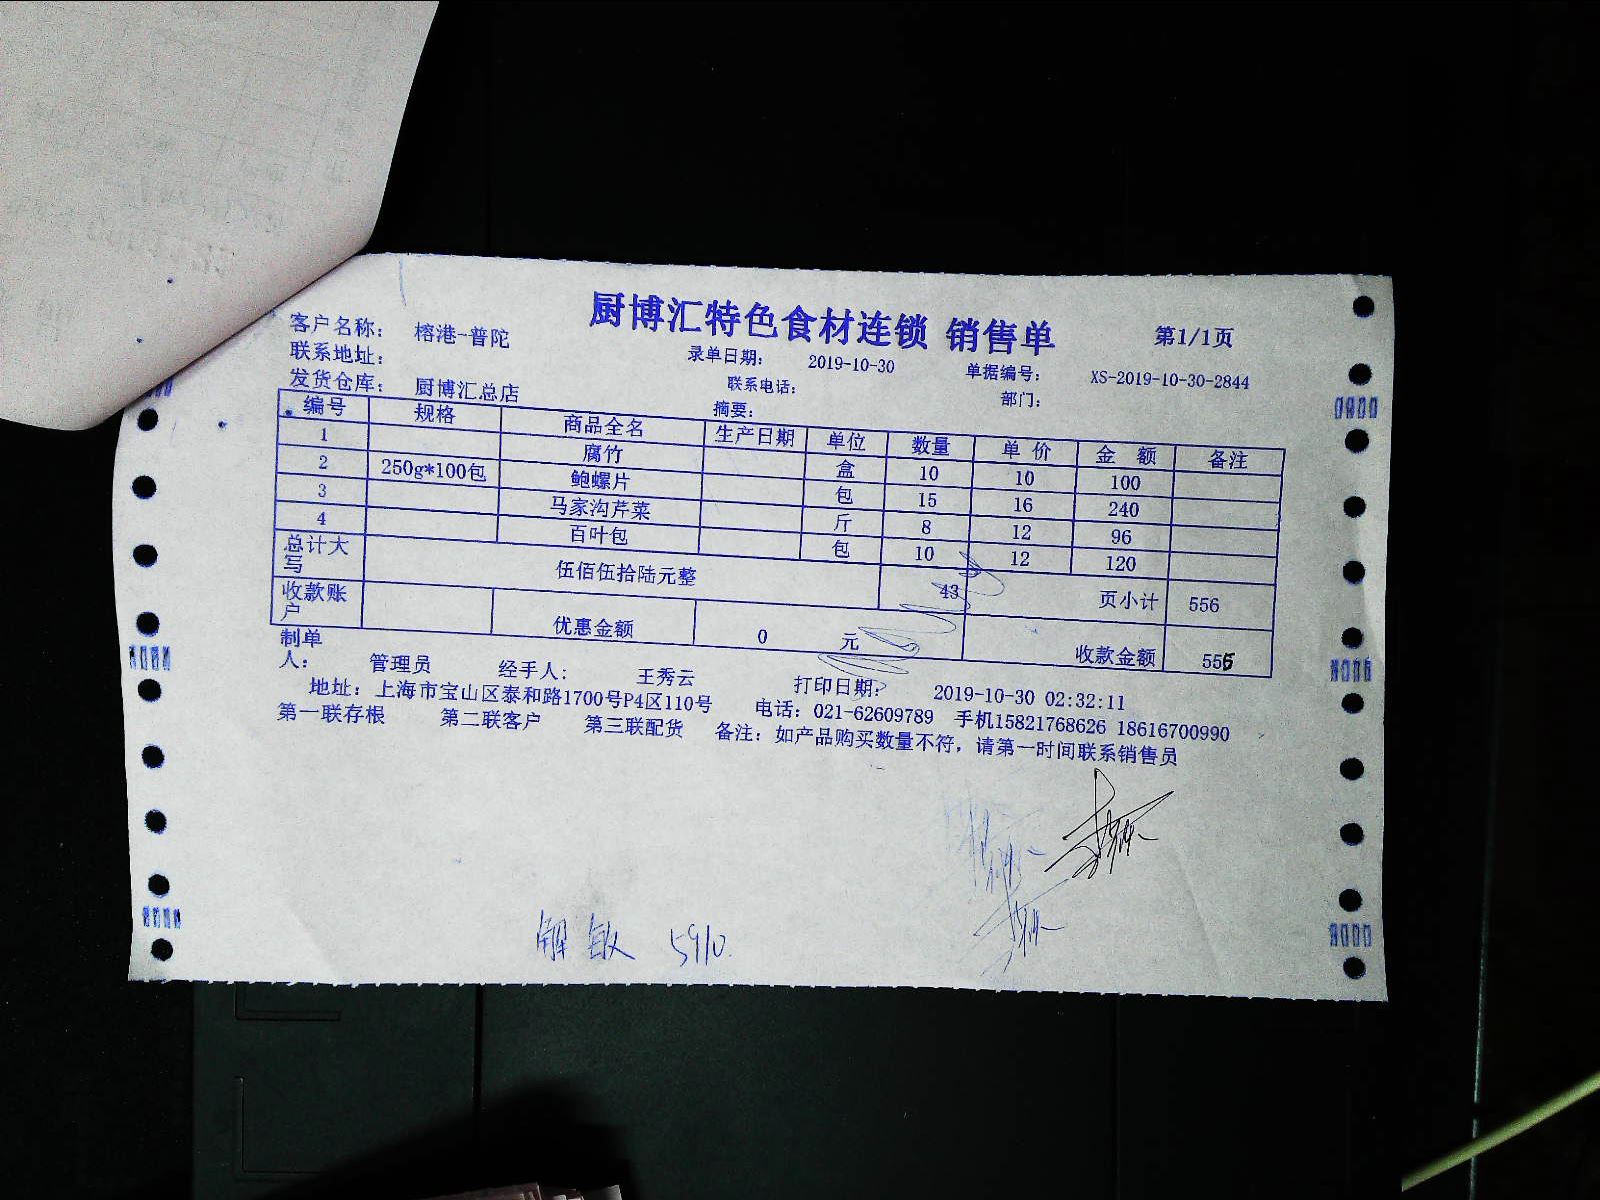 厨博汇特色食材连锁 销售单 第1/1页
客户名称: 榕港-普陀 录单日期: 2019-10-30 单据编号: XS-2019-10-30-2844
联系地址: 联系电话: 部门:
发货仓库: 厨博汇总店 摘要:
编号 规格 商品全名 生产日期 单位 数量 单价 金额 备注
1 腐竹 盒 10 10 100
2 250g*100包 鲍螺片 包 15 16 240
3 马家沟芹菜 斤 8 12 96
4 百叶包 包 10 12 120
总计大写 伍佰伍拾陆元整 43 页小计 556
收款账户 优惠金额 0 元 收款金额 555
制单人: 管理员 经手人: 王秀云 打印日期: 2019-10-30 02:32:11
地址: 上海市宝山区泰和路1700号P4区110号 电话: 021-62609789 手机15821768626 18616700990
第一联存根 第二联客户 第三联配货 备注: 如产品购买数量不符, 请第一时间联系销售员
解敏 5910.